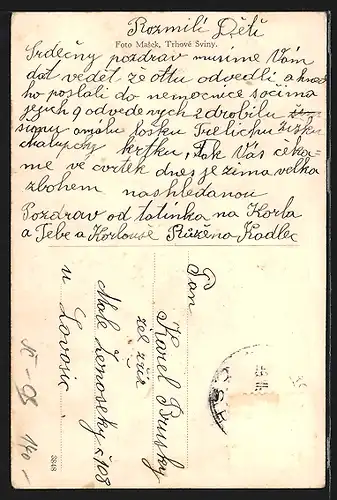 Rozmilí Děti
Foto Mašek, Trhové Sviny.
Srdečny pozdrav musime Vám
dat vědět že ottu odvedli a hned
ho poslali do nemocnice sočima
jejich 9 odvedenych z drobilu
amálu Tošku
chalupcky krtku, Tak Vás čeka-
me ve cvrtek dnes je zima velka
zbohem nashledanou
Pozdrav od tatinka na Korla
a Tebe a Korlouše Růžena Kadlec
Pan
Karel Brusky
zel zříz
Male Žernoseky č 108
u Lovosic
140-